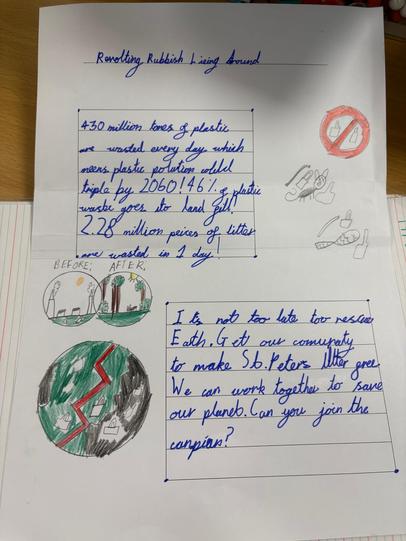 Revolting Rubbish Living Around
430 million tones of plastic
are wasted every day which
means plastic polution could
triple by 2060! 46% of plastic
waste goes to land fill!
2.28 million peices of litter
are wasted in 1 day!
BEFORE: AFTER:
It's not too late too rescue
Eath. Get our comunaty
to make St. Peters litter free
We can work together to save
our planet. Can you join the
canpian?